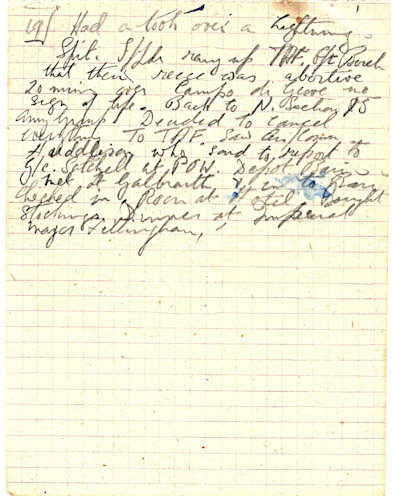 19/ Had a look over a Lightning
Spit. S/Ldr rang up TAF, F/Lt
that their recce was abortive
20 mins over Campo di Giove no
sign of life. Back to N. Section 85
any group! Decided to cancel
everything To TAF. Saw Air/Com
who said to report to
at P.O.W. Depot Bari
met Lt Galbraith to
Checked in, Room at Hotel Bought
stockings, Dinner at Imperial
Major Fillingham,